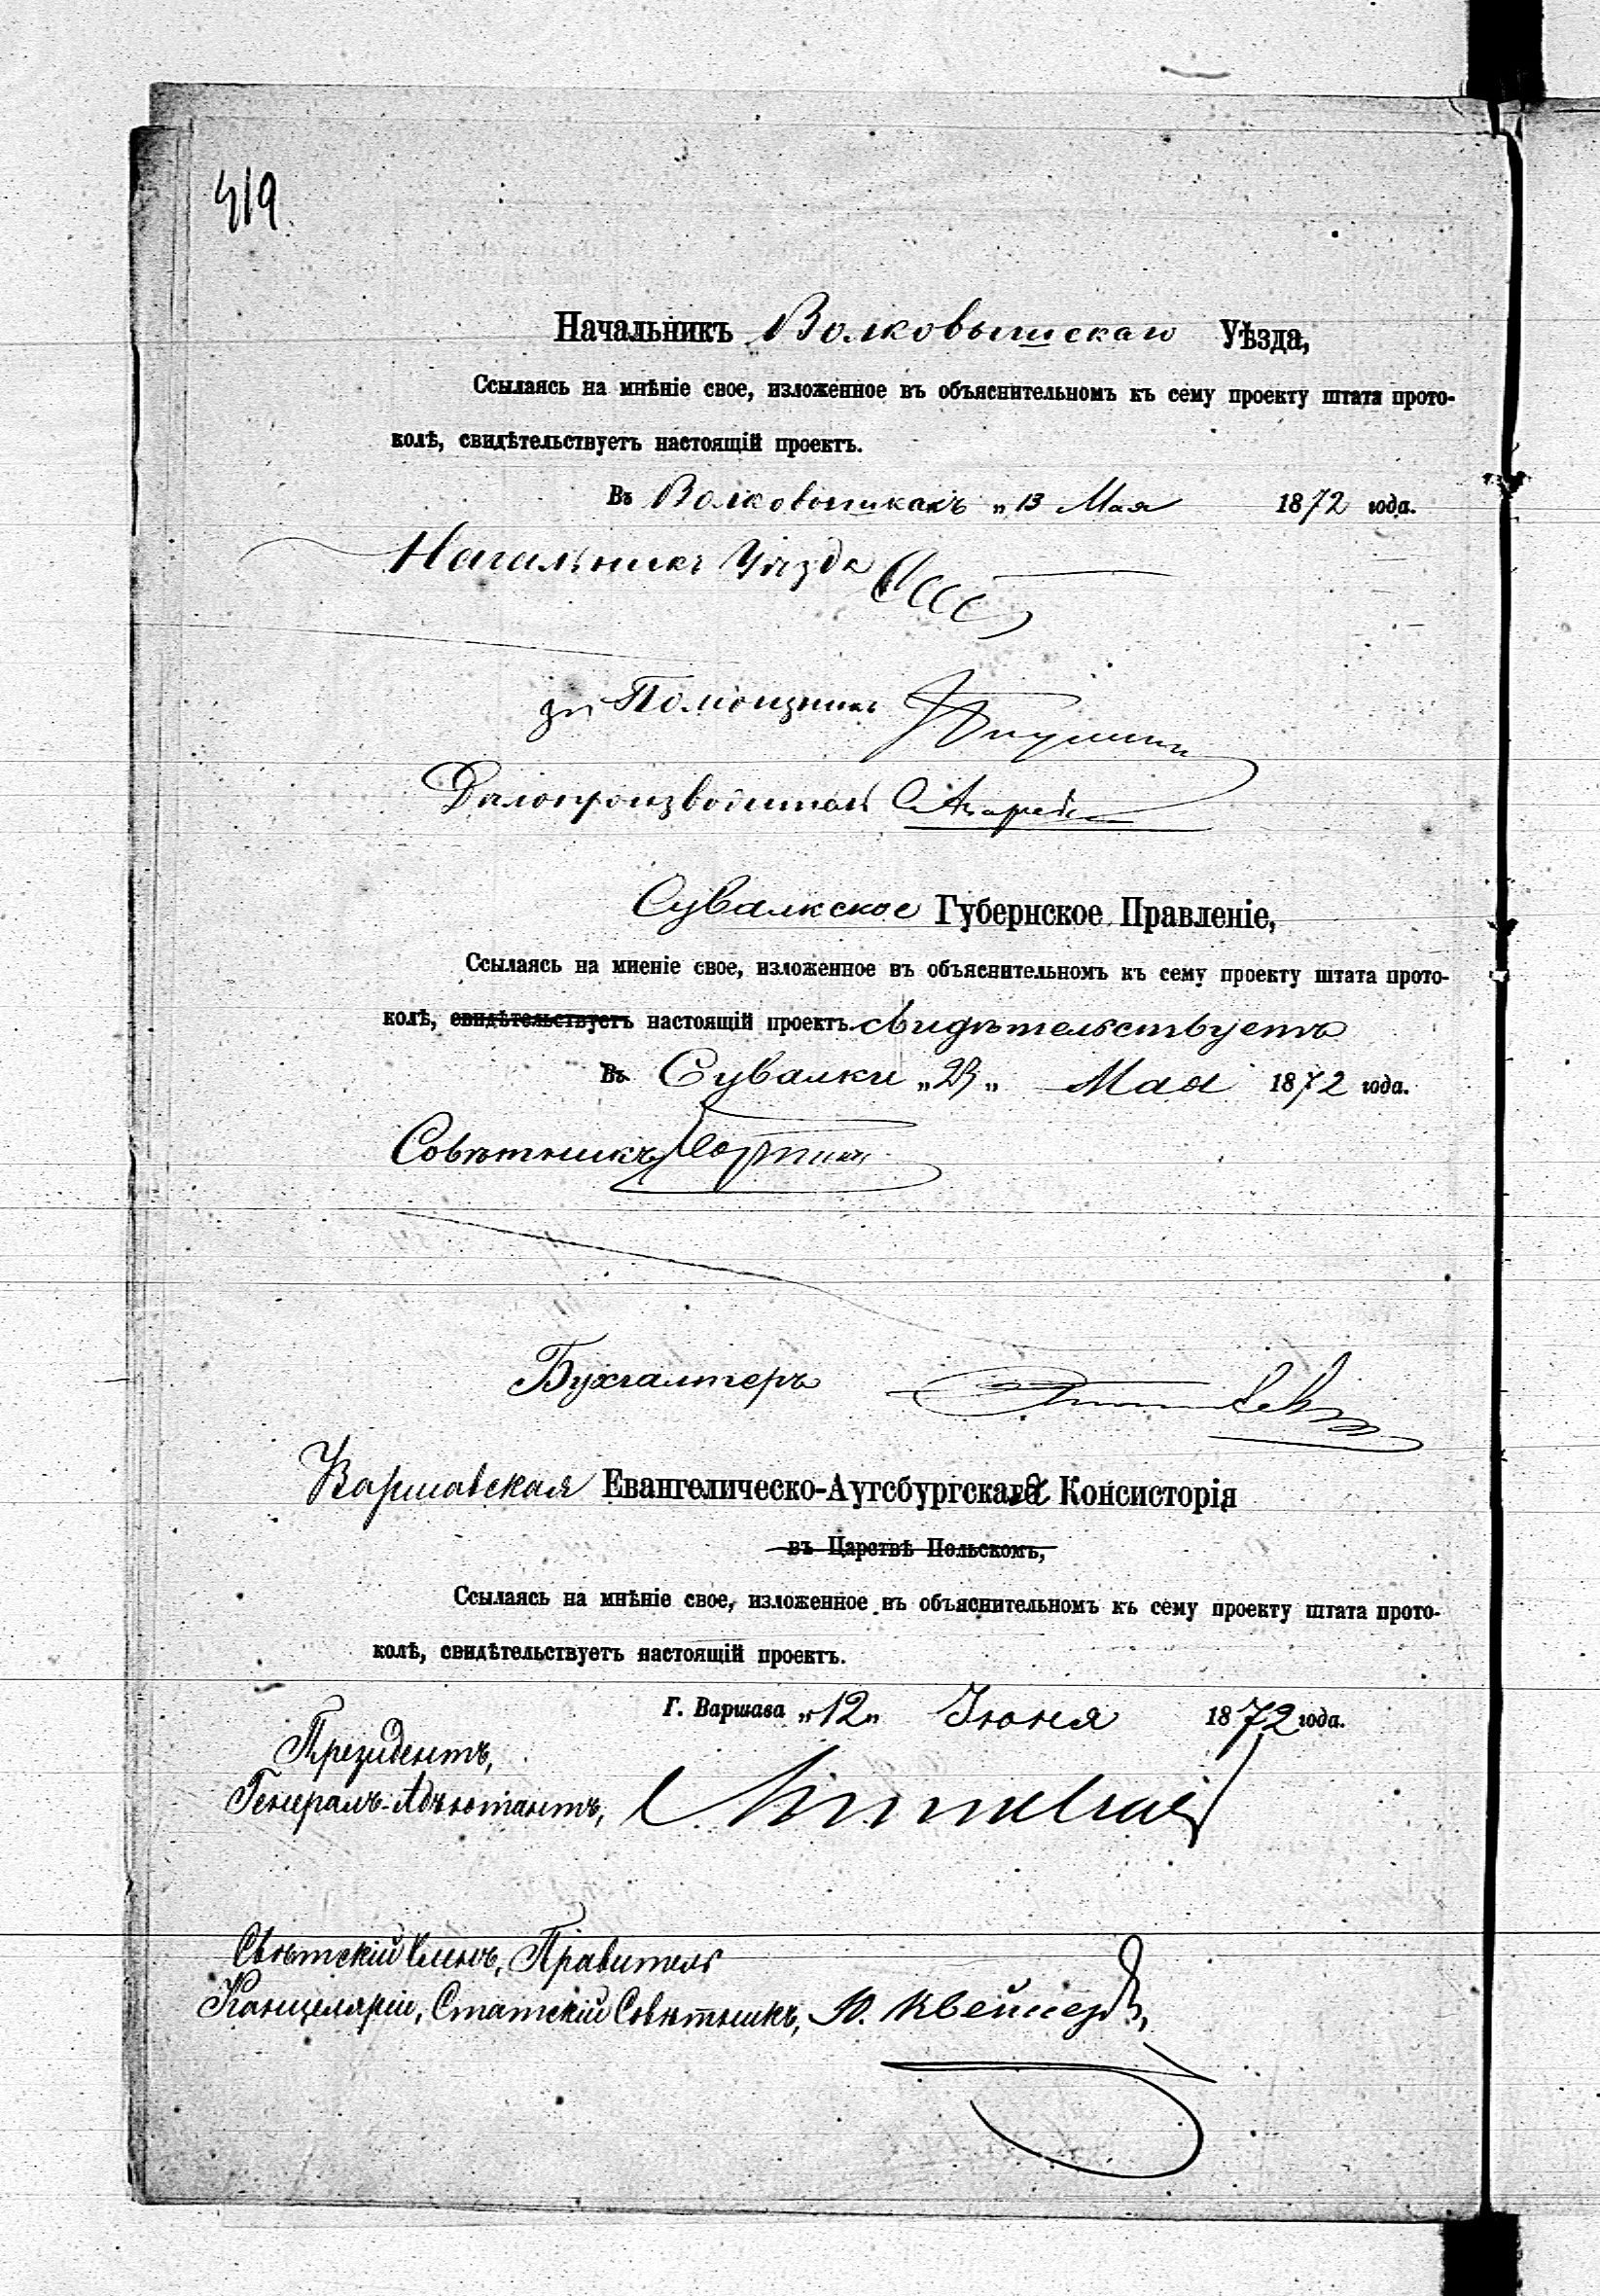 419.
Начальникъ Волковышскаго Уѣзда,
Ссылаясь на мнѣніе свое, изложенное въ объяснительномъ къ сему проекту штата прото-
колѣ, свидѣтельствуетъ настоящій проектъ.
Въ Волковышкахъ „13 Мая 1872 года.
Начальникъ Уѣзда
за Помощника
Дѣлопроизводитель
Сувалкское Губернское Правленіе,
Ссылаясь на миеніе свое, изложенное въ объяснительномъ къ сему проекту штата прото-
колѣ, свидѣтельствуетъ настоящій проектъ свидѣтельствуетъ
Въ Сувалки „23„ Мая 1872 года.
Совѣтникъ
Бухгалтеръ
Варшавская Евангелическо-Аугсбургская Консисторія
въ Царствѣ Польскомъ,
Ссылаясь на мнѣніе свое, изложенное въ объяснительномъ къ сему проекту штата прото-
колѣ, свидѣтельствуетъ настоящій проектъ.
Г. Варшава „12„ Іюня 1872 года.
Президентъ,
Генералъ-Адъютантъ,
Свѣтскій Членъ, Правитель
Канцеляріи, Статскій Совѣтникъ,